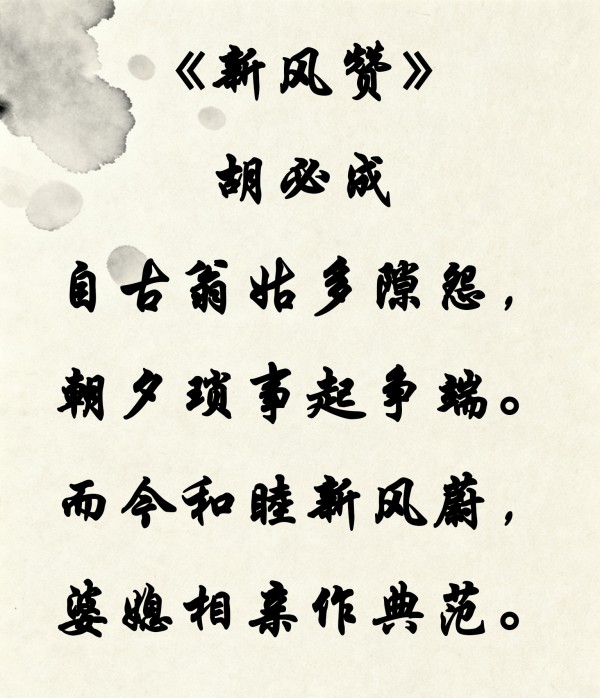 《新风赞》
胡必成
自古翁姑多隙怨，
朝夕琐事起争端。
而今和睦新风蔚，
婆媳相亲作典范。